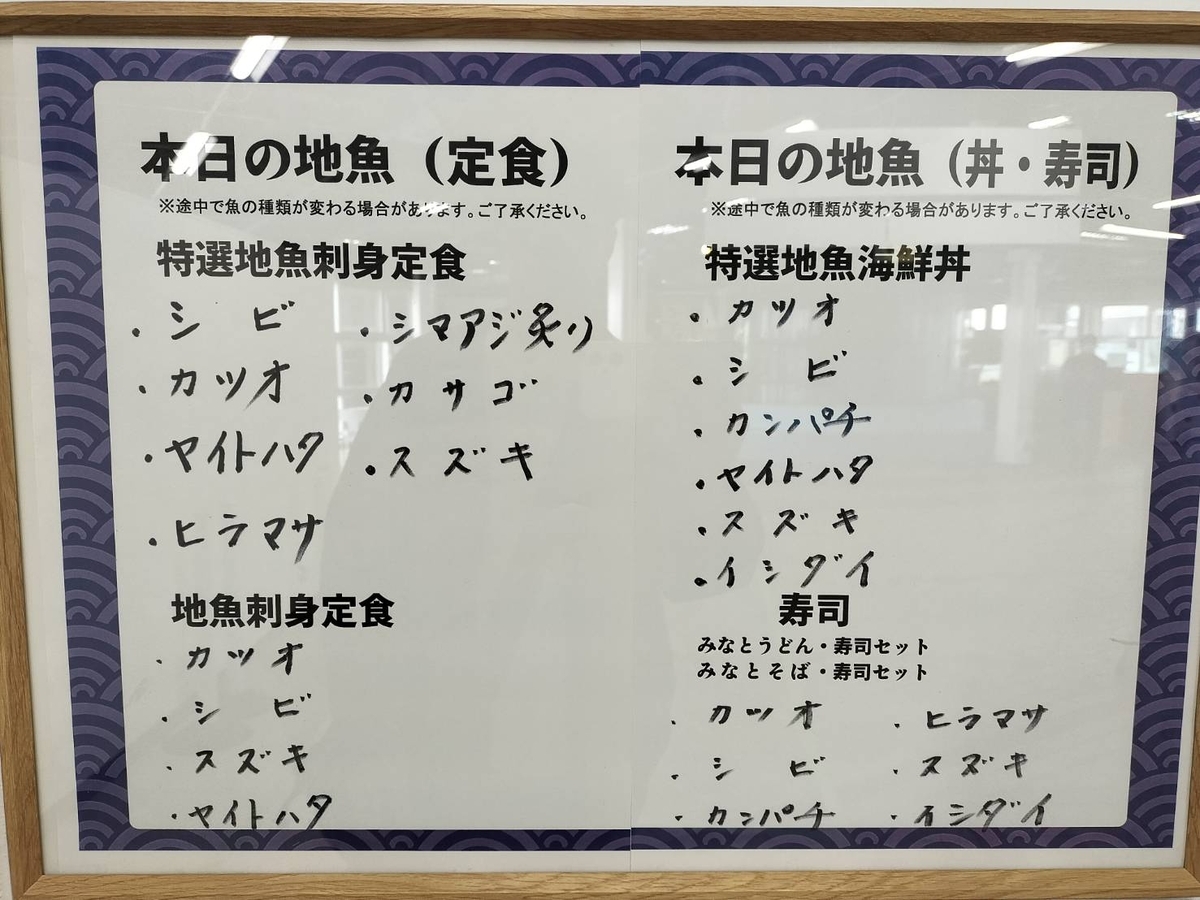 本日の地魚（定食）
※途中で魚の種類が変わる場合があります。ご了承ください。
特選地魚刺身定食
・シビ
・カツオ
・ヤイトハタ
・ヒラマサ
・シマアジ炙り
・カサゴ
・スズキ
地魚刺身定食
・カツオ
・シビ
・スズキ
・ヤイトハタ
本日の地魚（丼・寿司）
※途中で魚の種類が変わる場合があります。ご了承ください。
特選地魚海鮮丼
・カツオ
・シビ
・カンパチ
・ヤイトハタ
・スズキ
・イシダイ
寿司
みなとうどん・寿司セット
みなとそば・寿司セット
・カツオ
・シビ
・カンパチ
・ヒラマサ
・スズキ
・イシダイ